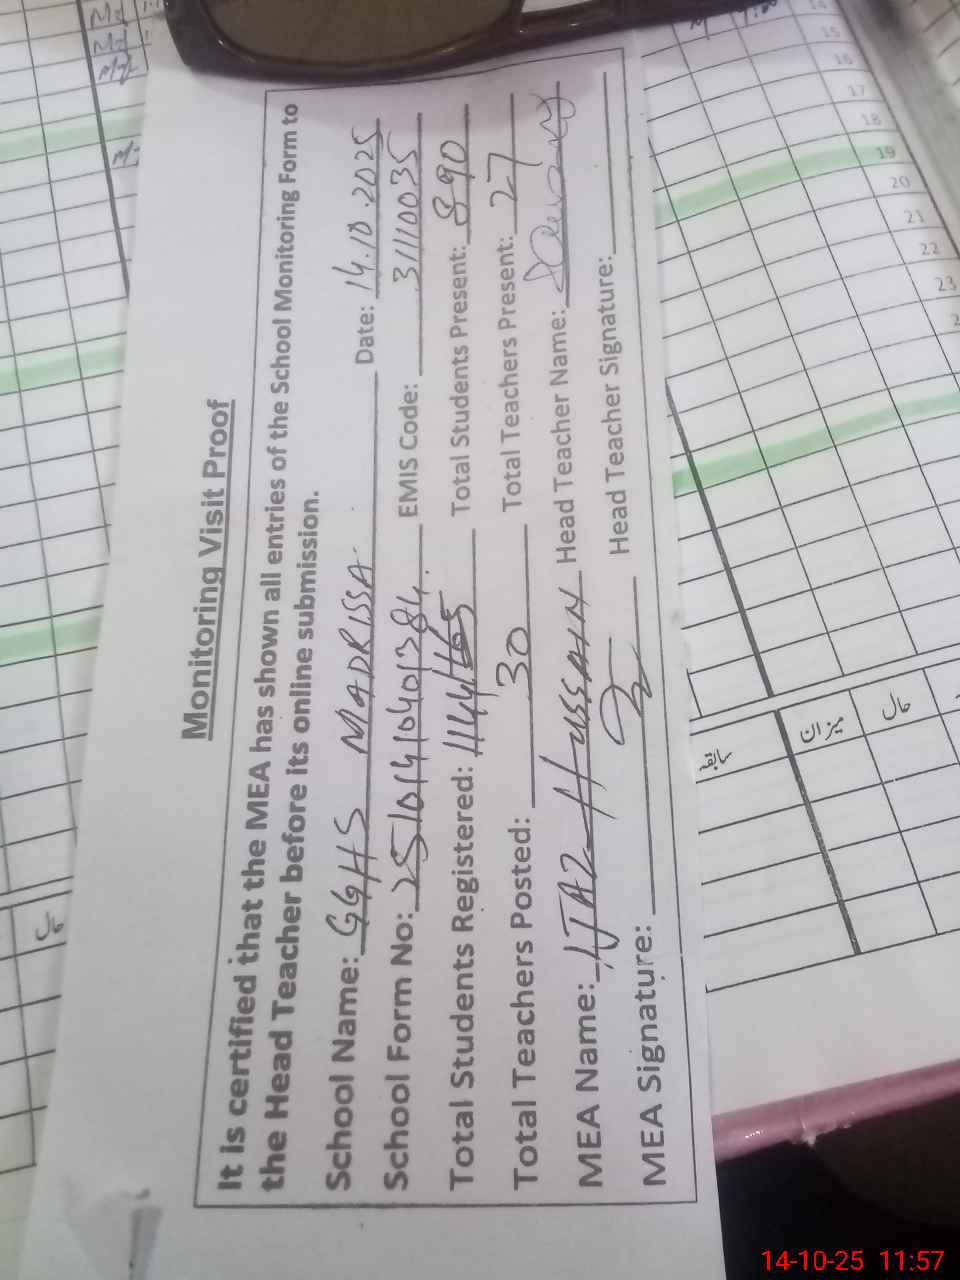 Monitoring Visit Proof
It is certified that the MEA has shown all entries of the School Monitoring Form to
the Head Teacher before its online submission.
School Name: GGHS MADRISSA Date: 14.10.2025
School Form No: 2510141040101384. EMIS Code: 31110035
Total Students Registered: 1144 Total Students Present: 890
Total Teachers Posted: 30 Total Teachers Present: 27
MEA Name: IJAZ HUSSAIN Head Teacher Name:
MEA Signature: Head Teacher Signature:
14
15
16
17
18
19
20
21
22
23
سابقہ
میزان
حال
حال
14-10-25 11:57